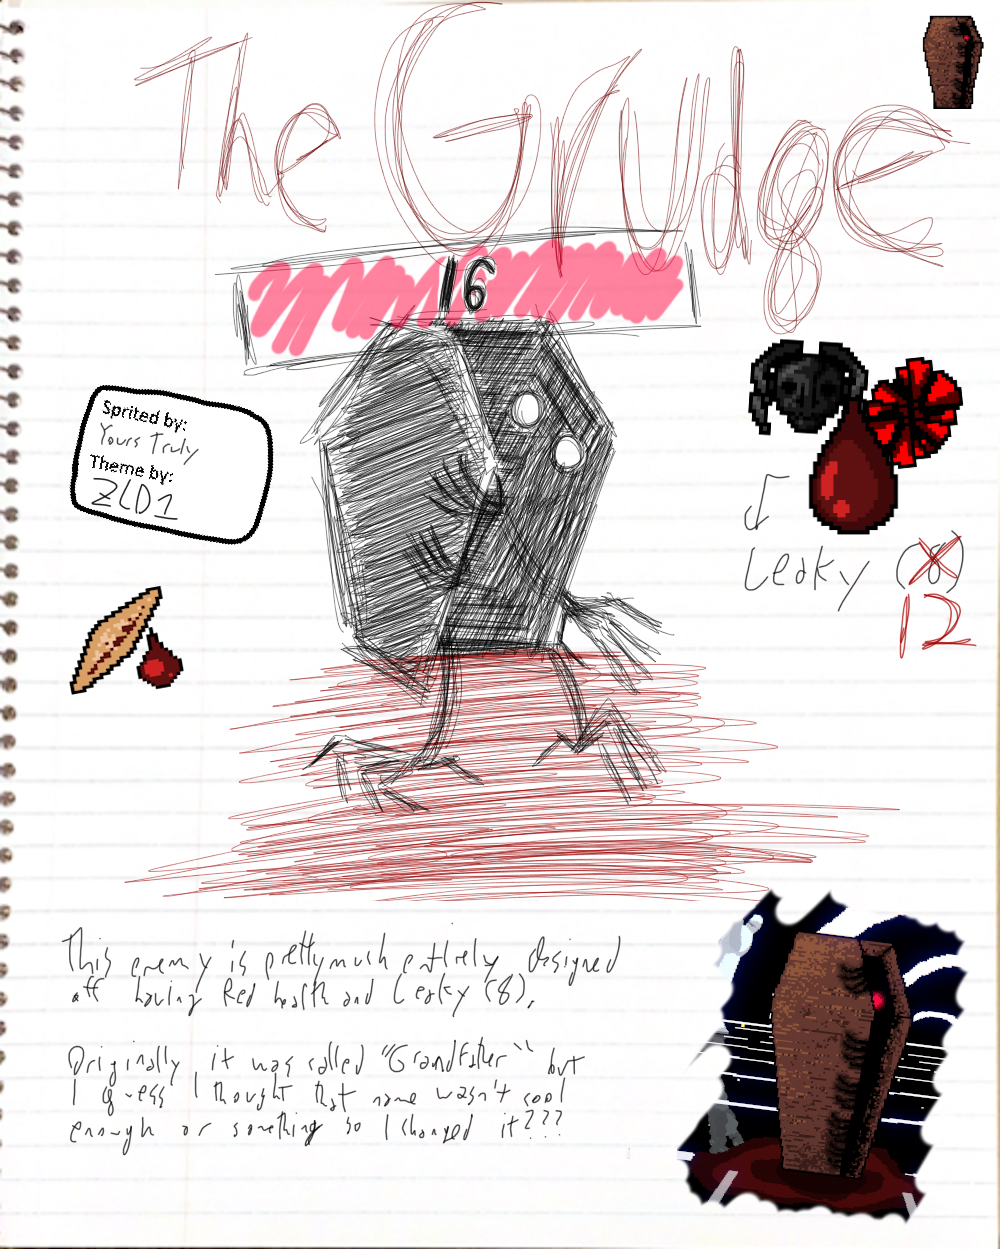 The Grudge
16
Sprited by:
Yours Truly
Theme by:
ZLD1
Leaky (8)
12
This enemy is prettymuch entirely designed
off having Red health and Leaky (8).
Originally it was called "Grandfather" but
I guess I thought that name wasn't cool
enough or something so I changed it???